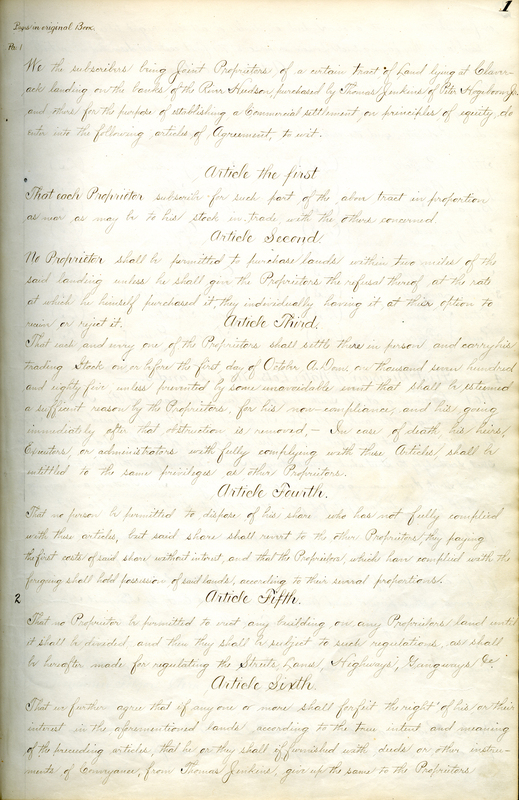 1
Page in original Book.
No. 1
We the subscribers being Joint Proprietors, of a certain tract of Land lying at Claver-
ack landing on the banks of the River Hudson, purchased by Thomas Jenkins of Peter Hogeboom Jr.
and others for the purpose of establishing a Commercial settlement, on principles of equity, do
enter into the following articles of Agreement, to wit.
Article the first
That each Proprietor subscribe for such part of the above tract in proportion
as near as may be to his stock in trade, with the others concerned
Article Second.
No Proprietor shall be permitted to purchase lands within two miles of the
said landing unless he shall give the Proprietors the refusal thereof, at the rate
at which he himself purchased it, they individually having it at their option to
receive or reject it.
Article Third.
That each and every one of the Proprietors shall settle there in person and carry his
trading Stock on or before the first day of October A. Dom. one thousand seven hundred
and eighty five unless prevented by some unavoidable event that shall be esteemed
a sufficient reason by the Proprietors, for his non-compliance, and his going
immediately after that obstruction is removed, – In case of death his heirs,
Executors, or administrators with fully complying with these Articles, shall be
entittled to the same privileges as other Proprietors.
Article Fourth.
That no person be permitted to dispose of his share who has not fully complied
with these articles, but said share shall revert to the other Proprietors, they paying
the first costs of said share without interest, and that the Proprietors, which have complied with the
forgoing shall hold possession of said lands, according to their several proportions.
2
Article Fifth.
That no Proprietor be permitted to erect any building on any Proprietors land until
it shall be divided, and then they shall be subject to such regulations, as shall
be hereafter made for regulating the Streets, Lanes, Highways, Gangways &c.
Article Sixth.
That we further agree that if any one or more shall forfeit the right of his or their
interest in the aforementioned lands according to the true intent and meaning
of the preceeding articles, that he or they shall if furnished with deeds or other instru-
ments of Conveyance, from Thomas Jenkins, give up the same to the Proprietors